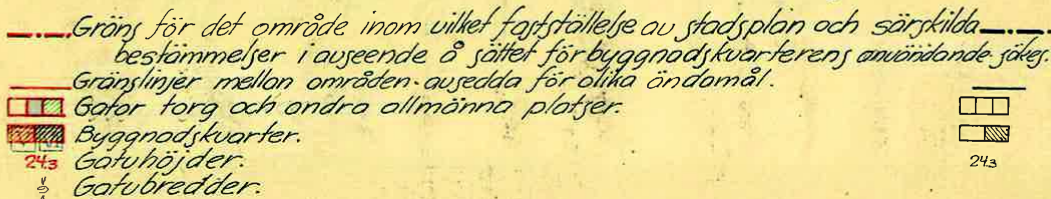 Gräns för det område inom vilket fastställelse av stadsplan och särskilda
bestämmelser i avseende å sättet för byggnadskvarterens användande sökes.
Gränslinjer mellan områden avsedda för olika ändamål.
Gator torg och andra allmänna platser.
Byggnadskvarter.
24.3 Gatuhöjder. 24.3
Gatubredder.